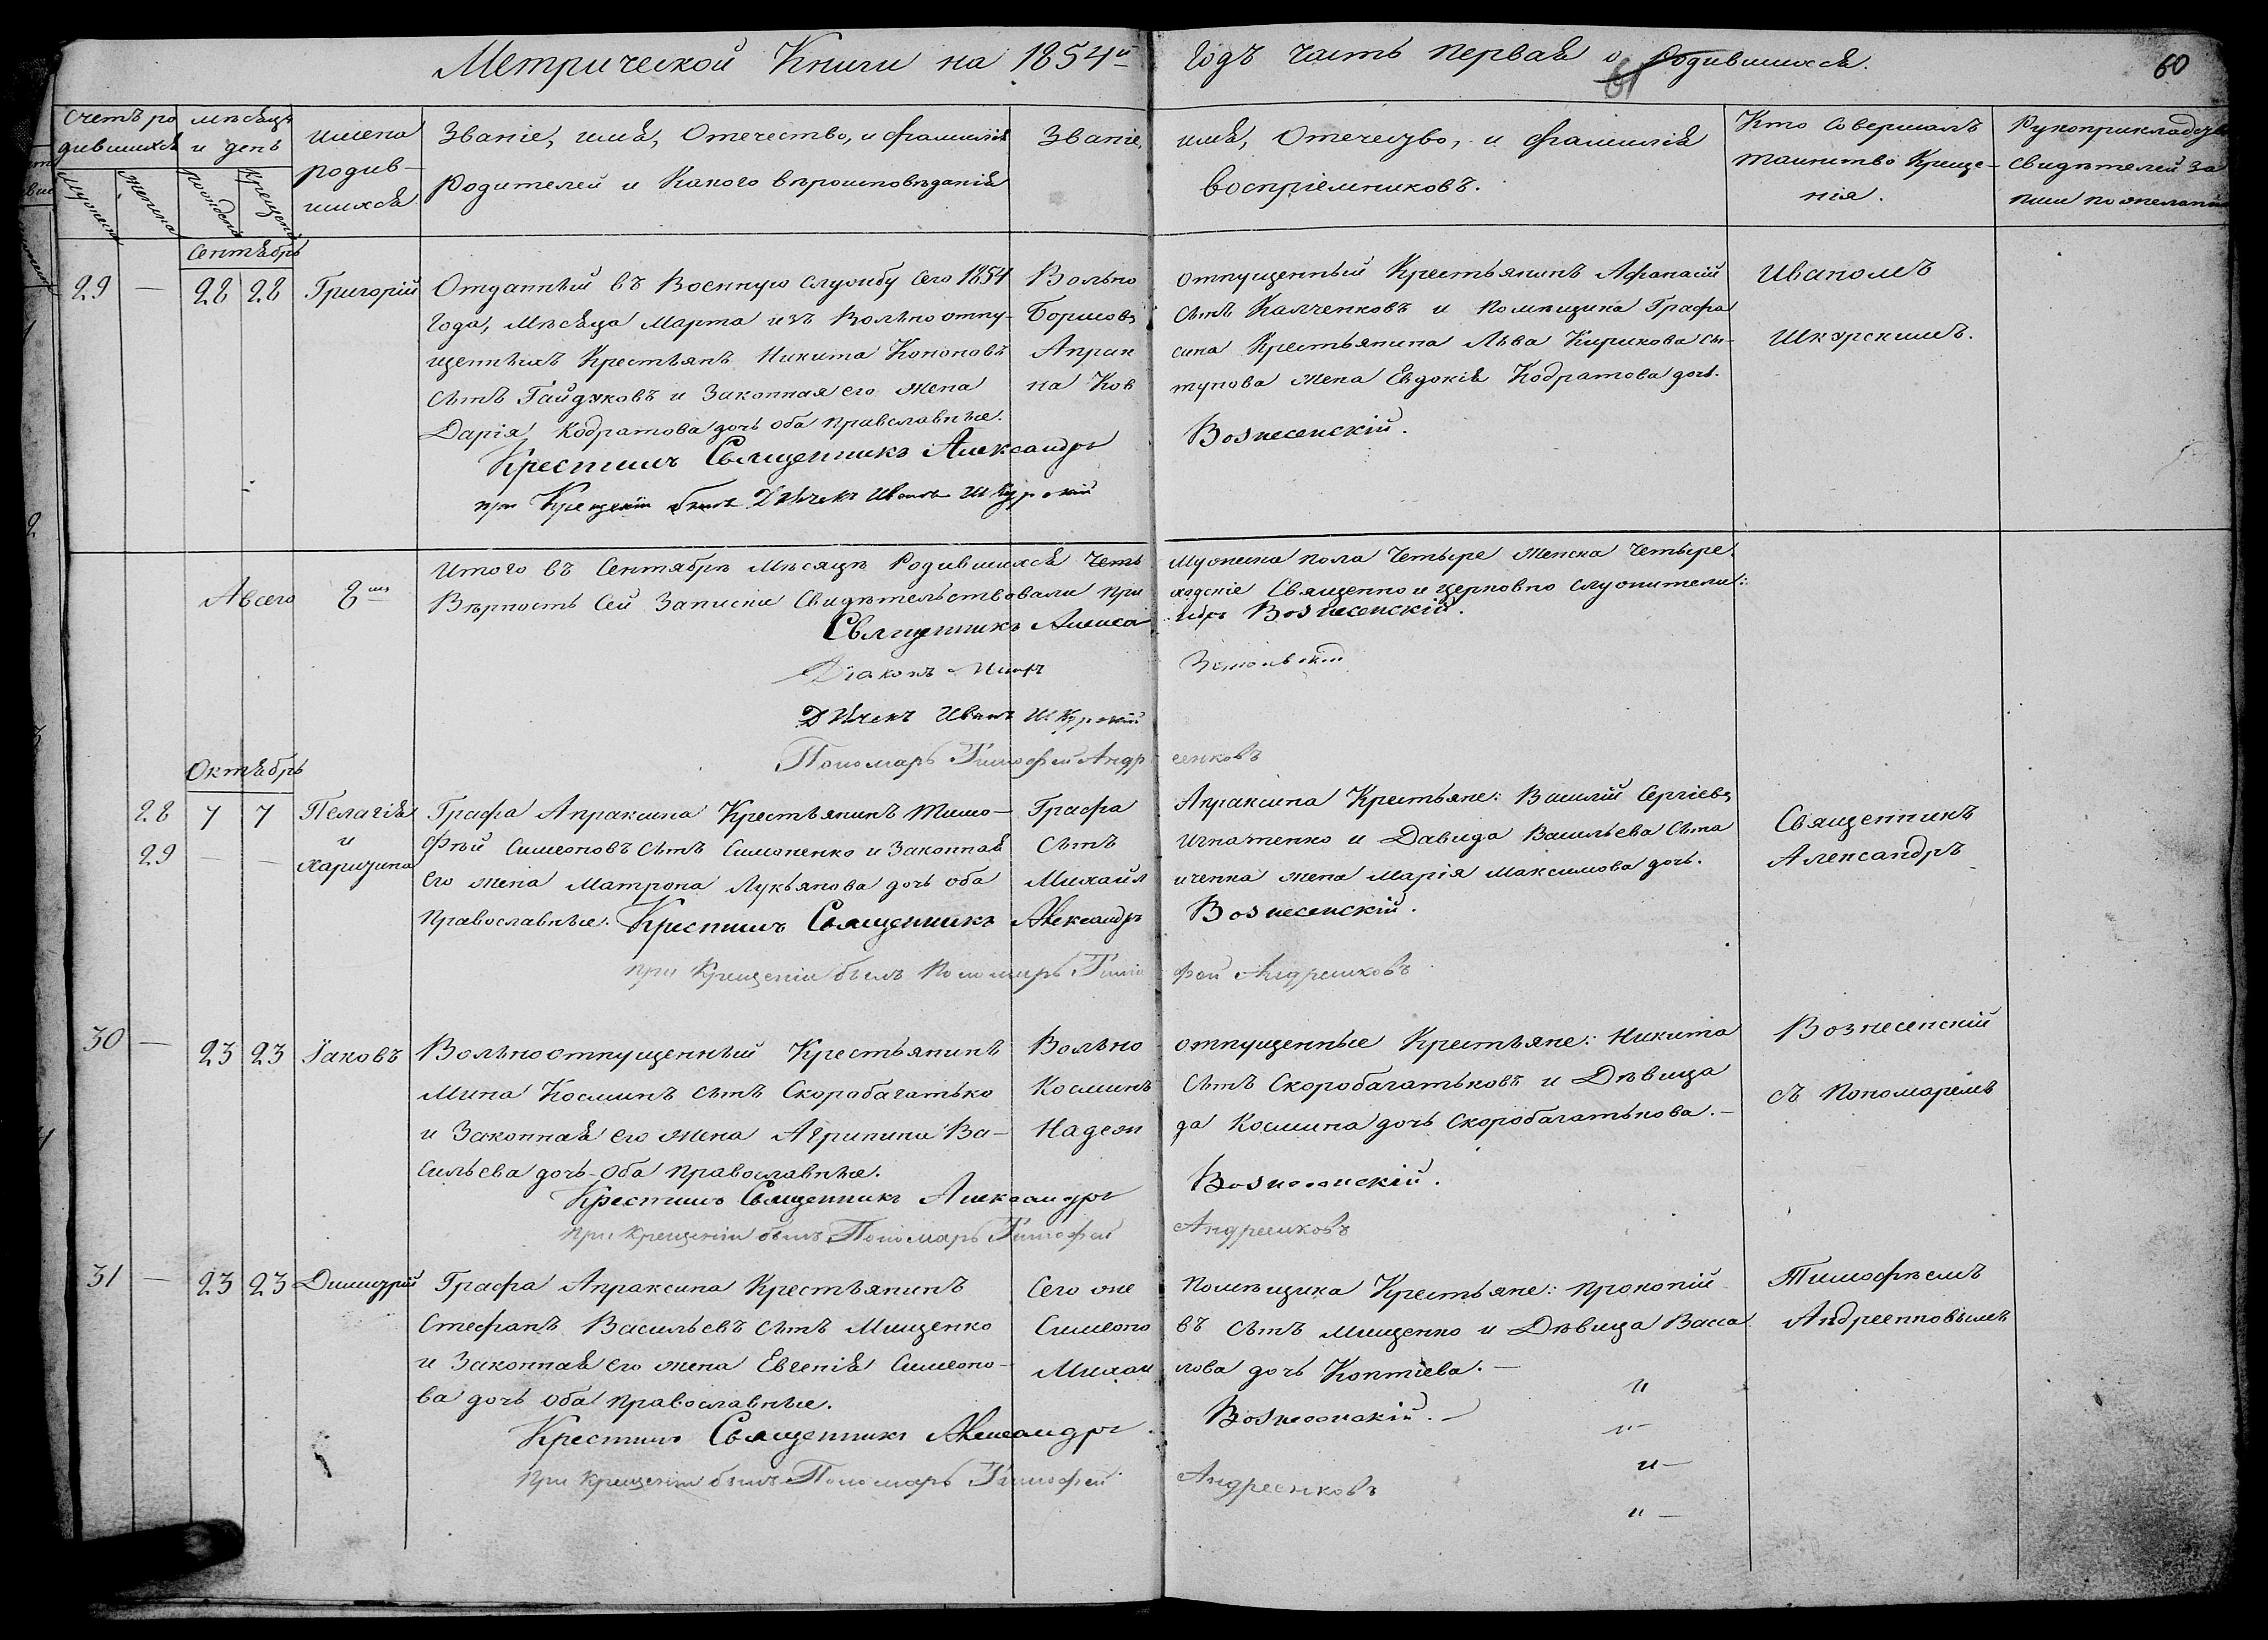 Метрической Книги на 1854й Годъ часть первая о Родившихся.
61
60
Счетъ ро
дившихся
Мужеска
Женска
мѣсяцъ
и день
рожденія
крещенія
имена
родив-
шихся
Званіе, имя, Отечество, и фамилія
Родителей и Какого вѣроисповѣданія
Званіе, имя, Отечество, и фамилія
воспріемниковъ.
Кто совершалъ
таинство Креще-
нія.
Рукоприкладство
свидѣтелей за
писи по желанію
Сентябрь
29 — 28 28 Григорій
Отданный въ Военную службу Сего 1854
Года, Мѣсяца Марта изъ Вольноотпу-
щенныхъ Крестьянъ Никита Кононовъ
сынъ Гайдуковъ и Законная его жена
Дарія Кодратова дочь оба православные.
Вольно отпущенный Крестьянинъ Афанасій
Борисовъ сынъ Калченковъ и помѣщика Графа
Апраксина Крестьянина Льва Кирикова
на Ков тунова жена Евдокія Кодратова дочь.
Иваномъ
Шкурскимъ.
Крестилъ Священникъ Александръ Вознесенскій.
при Крещеніи былъ Дьячекъ Иванъ Шкурскій
Итого въ Сентябрѣ Мѣсяцѣ Родившихся Мужеска пола Четыре Женска Четыре.
А всего 8мь
Вѣрность Сей Записки Свидѣтельствовали приходскіе Священно и церковно служители:
Священникъ Александръ Вознесенскій.
Діаконъ
Дьячекъ Иванъ Шкурскій
Пономарь Тимофей Андреенковъ
Октябрь
28 7 7 Пелагія
и
29 — — Харитина
Графа Апраксина Крестьянинъ Тимо-
фѣй Симеоновъ сынъ Симоненко и Законная
его жена Матрона Лукьянова дочь оба
православные.
Графа Апраксина Крестьяне: Василій Сергіевъ
сынъ Игнатенко и Давида Васильева Сына
Михайличенка жена Марія Максимова дочь.
Священникъ
Александръ
Крестилъ Священникъ Александръ Вознесенскій.
при Крещеніи былъ Пономарь Тимофей Андреенковъ
30 — 23 23 Іаковъ
Вольноотпущенный Крестьянинъ
Мина Косминъ сынъ Скоробагатько
и Законная его жена Агрипина Ва-
сильева дочь оба православные.
Вольно отпущенные Крестьяне: Никита
Косминъ сынъ Скоробагатьковъ и Дѣвица
Надежда Космина дочь Скоробагатькова.—
Вознесенскій
съ Пономаремъ
Крестилъ Священникъ Александръ Вознесенскій.
при крещеніи былъ Пономарь Тимофей Андреенковъ
31 — 23 23 Димитрій
Графа Апраксина Крестьянинъ
Стефанъ Васильевъ сынъ Мищенко
и Законная его жена Евгенія Симеоно-
ва дочь оба православные.
Сего же помѣщика Крестьяне: Прокопій
Симеоновъ сынъ Мищенко и Дѣвица Васса
Михаилова дочь Коптіева.—
Тимофѣемъ
Андреенковымъ
Крестилъ Священникъ Александръ Вознесенскій.—
при крещеніи былъ Пономарь Тимофей Андреенковъ